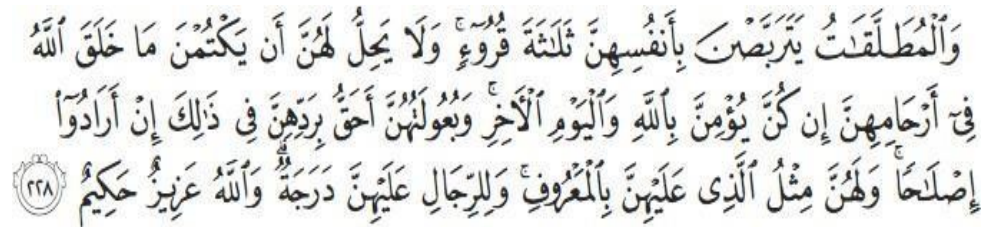 وَٱلْمُطَلَّقَـٰتُ يَتَرَبَّصْنَ بِأَنفُسِهِنَّ ثَلَـٰثَةَ قُرُوٓءٍۚ وَلَا يَحِلُّ لَهُنَّ أَن يَكْتُمْنَ مَا خَلَقَ ٱللَّهُ
فِىٓ أَرْحَامِهِنَّ إِن كُنَّ يُؤْمِنَّ بِٱللَّهِ وَٱلْيَوْمِ ٱلْـَٔاخِرِۚ وَبُعُولَتُهُنَّ أَحَقُّ بِرَدِّهِنَّ فِى ذَٰلِكَ إِنْ أَرَادُوٓا۟
إِصْلَـٰحًاۚ وَلَهُنَّ مِثْلُ ٱلَّذِى عَلَيْهِنَّ بِٱلْمَعْرُوفِۚ وَلِلرِّجَالِ عَلَيْهِنَّ دَرَجَةٌۗ وَٱللَّهُ عَزِيزٌ حَكِيمٌ ٢٢٨